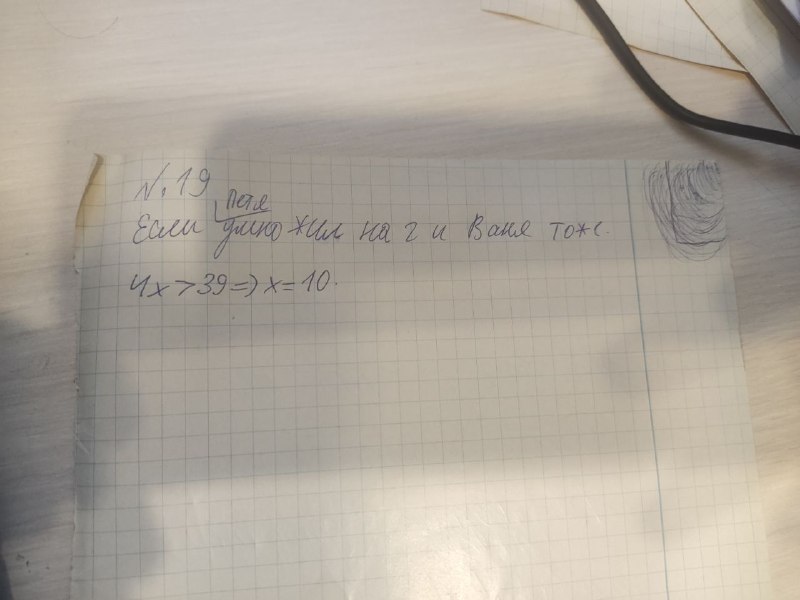 N.19
Если Петя умножил на 2 и Ваня тоже.
4x > 39 => x = 10.